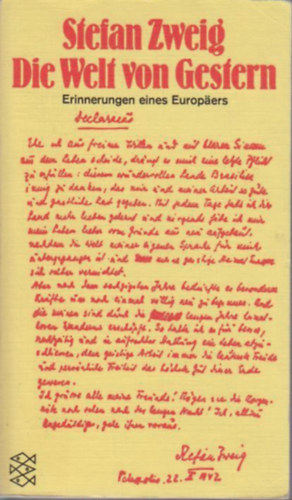 Stefan Zweig
Die Welt von Gestern
Erinnerungen eines Europäers
Declaração
Ehe ich aus freiem Willen und mit klaren Sinnen
aus dem Leben scheide, drängt es mich eine letzte Pflicht
zu erfüllen: diesem wundervollen Lande Brasilien
innig zu danken, das mir und meiner Arbeit so gute
und gastliche Rast gegeben. Mit jedem Tage habe ich dies
Land mehr lieben gelernt und nirgends hätte ich mir
mein Leben lieber vom Grunde aus neu aufgebaut,
nachdem die Welt meiner eigenen Sprache für mich
untergegangen ist und meine geistige Heimat Europa
sich selber vernichtet.
Aber nach dem sechzigsten Jahre bedürfte es besonderer
Kräfte um noch einmal völlig neu zu beginnen. Und
die meinen sind durch die langen Jahre heimat-
losen Wanderns erschöpft. So halte ich es für besser,
rechtzeitig und in aufrechter Haltung ein Leben abzu-
schliessen, dem geistige Arbeit immer die lauterste Freude
und persönliche Freiheit das höchste Gut dieser Erde
gewesen.
Ich grüsse alle meine Freunde! Mögen sie die Morgen-
röte noch sehen nach der langen Nacht! Ich, allzu
Ungeduldiger, gehe ihnen voraus.
Stefan Zweig
Petropolis, 22. II 1942